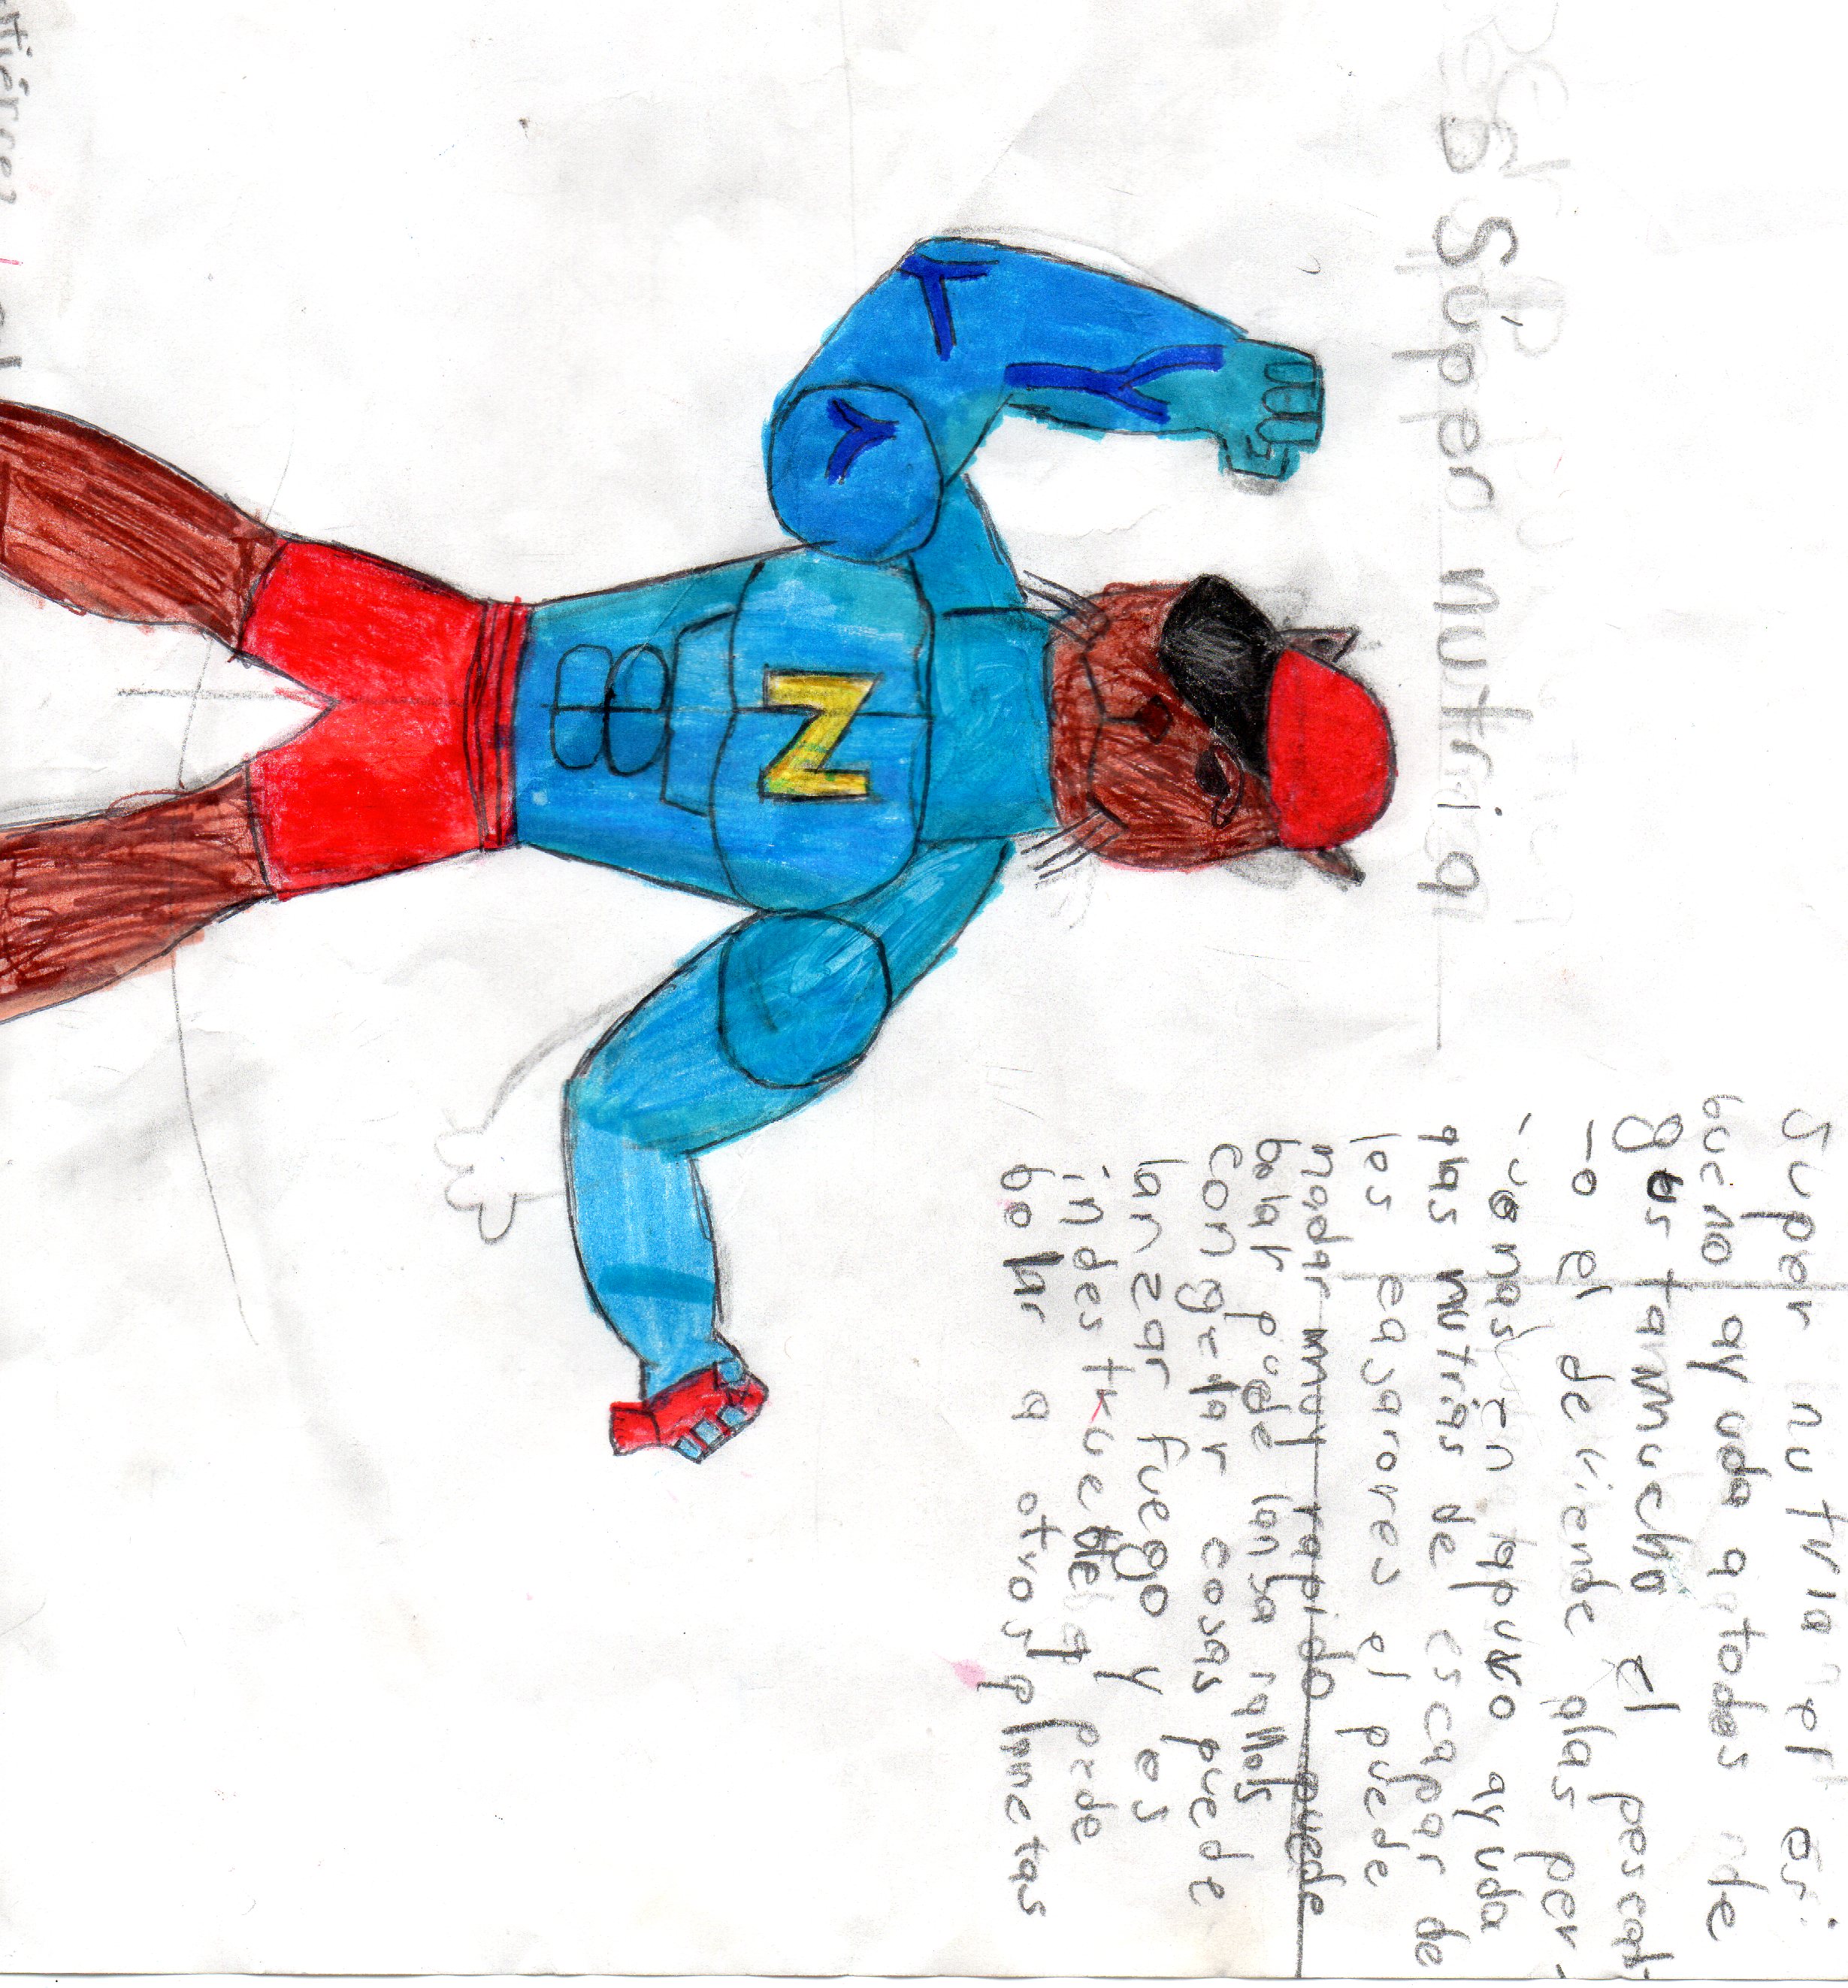 Súper nutria
Super nutria nrt es
bueno ayuda atodos
gustarmucho el pescad
-o el defiende alas per-
-sonas en apuro ayuda
alas nutrias de escapar de
los easarores el puede
nadar muy rapido puede
bolar puede lansa rallos
congelar cosas puede
lanzar fuego y es
indestructible puede
bolar a otros planetas
N